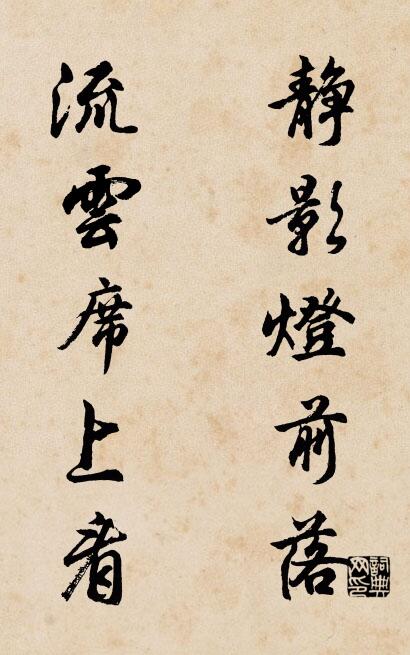 静影燈前落
流雲席上看
詞典网印